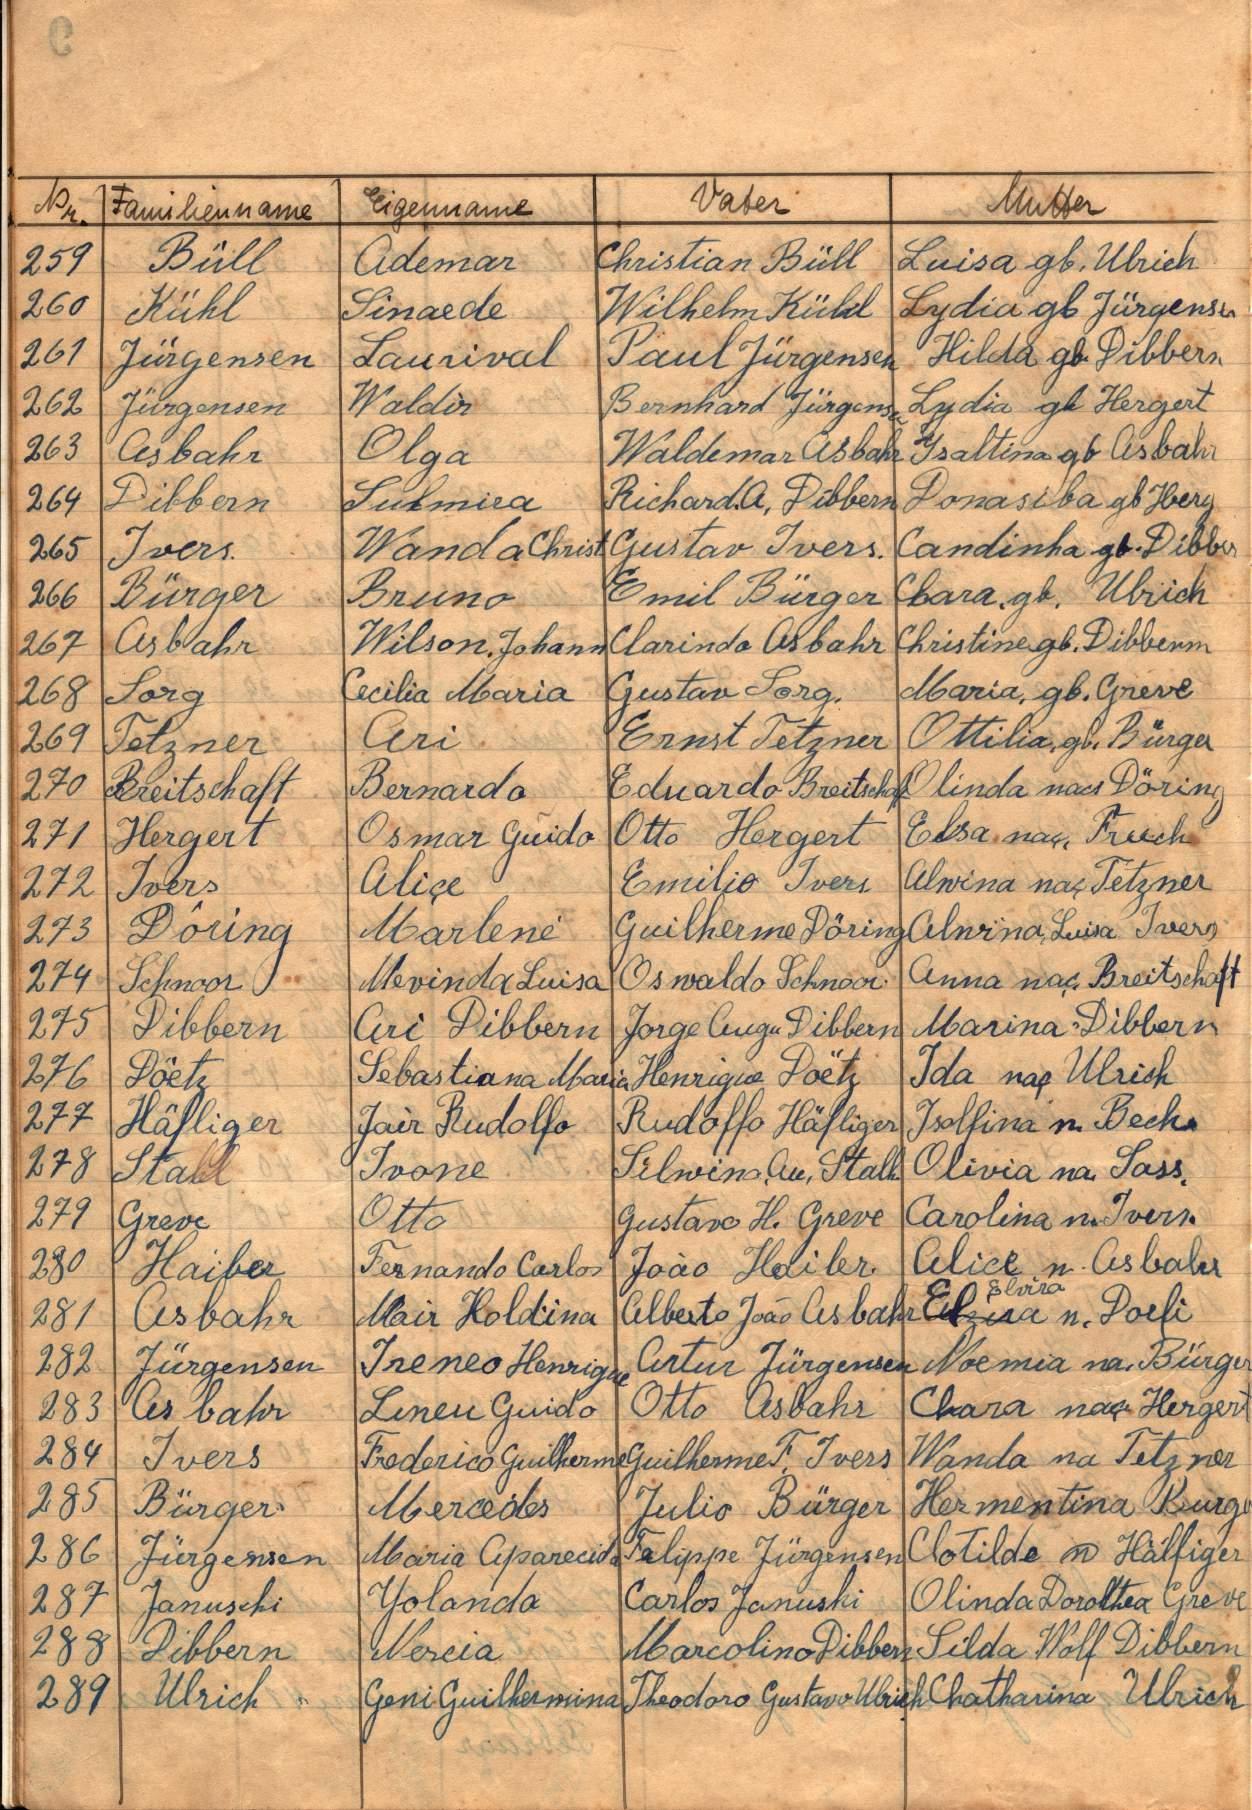 Nr. Familienname Eigenname Vater Mutter
259 Büll Ademar Christian Büll Luisa gb. Ulrich
260 Kühl Sinaede Wilhelm Kühl Lydia gb Jürgensen
261 Jürgensen Laurival Paul Jürgensen Hilda gb. Dibbern
262 Jürgensen Waldir Bernhard Jürgensen Lydia gb Hergert
263 Asbahr Olga Waldemar Asbahr Ysaltina gb Asbahr
264 Dibbern Richard. A, Dibbern gb Herg
265 Ivers. Wanda Christ Gustav Ivers. Candinha gb. Dibber
266 Bürger Bruno Emil Bürger Chara. gb. Ulrich
267 Asbahr Wilson. Johann Clarindo Asbahr Christine gb. Dibbernm
268 Sorg Cecilia Maria Gustav Sorg. Maria. gb. Greve
269 Tetzner Ari Ernst Tetzner Ottilia. gb. Bürger
270 Breitschaft Bernardo Eduardo Breitschaf Olinda nacs Döring
271 Hergert Osmar Guido Otto Hergert Elsa naç. Fruch
272 Ivers Aliçe Emilio Ivers Alwina naç Tetzner
273 Döring Marlene Guilherme Döring Alwina, Luisa Ivers
274 Schnoor Mevinda Luisa Oswaldo Schnoor. Anna naç. Breitschaft
275 Dibbern Ari Dibbern Jorge Augu Dibbern Marina Dibbern
276 Döetz Sebastiana Maria Henrique Döetz Ida naç Ulrich
277 Häfliger Jair Rudolfo Rudolfo Häfliger Isolfina n. Beck.
278 Stall Ivone Silwino. Au, Stall Olivia na. Sass.
279 Greve Otto Gustavo H. Greve Carolina n. Ivers.
280 Haiber Fernando Carlos João Haiber. Alice n. Asbahr
281 Asbahr Mair Holdina Alberto João Asbahr Elvira n. Doefi
282 Jürgensen Ireneo Henrique Artur Jürgensen Noemia na. Bürger
283 Asbahr Lineu Guido Otto Asbahr Chara naç Hergert
284 Ivers Frederico Guilherme Guilherme F. Ivers Wanda na Tetzner
285 Bürger Mercedes Julio Bürger Hermentina Burge
286 Jürgensen Maria Aparecida Felippe Jürgensen Clotilde n Hälfiger
287 Januschi Yolanda Carlos Januski Olinda Dorothea Greve
288 Dibbern Nercia Marcolino Dibbern Silda Wolf Dibbern
289 Ulrich Geni Guilhermina Theodoro Gustavo Ulrich Chatharina Ulrich